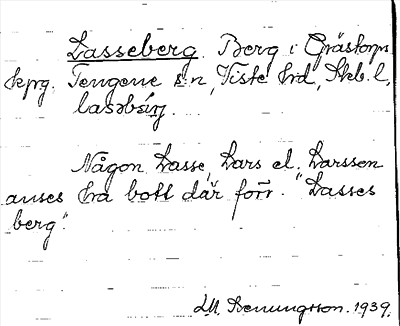 Lasseberg. Berg i Grästorps
kprg. Tengene sn, Viste hd, Skb. l,
lasəbærj.
Någon Lasse, Lars el. Larsson
anses ha bott där förr. "Lasses
berg".
1939.